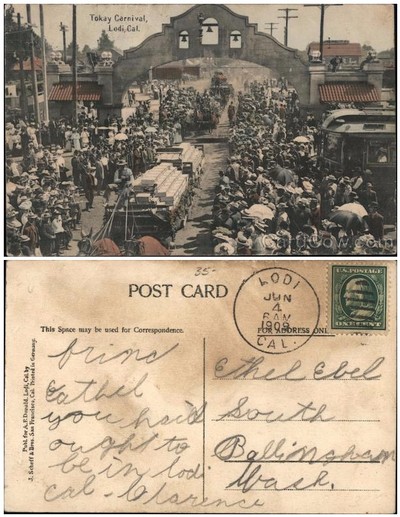 Tokay Carnival,
Lodi, Cal.
CardCow.com
35-
POST CARD
LODI
JUN
4
6 AM
1909
CAL.
U.S. POSTAGE
ONE CENT
This Space may be used for Correspondence.
FOR ADDRESS ONLY
Publ. for A. F. Donald, Lodi, Cal. by
J. Scheff & Bros. San Francisco, Cal. Printed in Germany.
frind
Eathel
you haid
ought to
be in lodi
Cal - Clarence
Ethel Ebel
South
Ballingham
Wash.